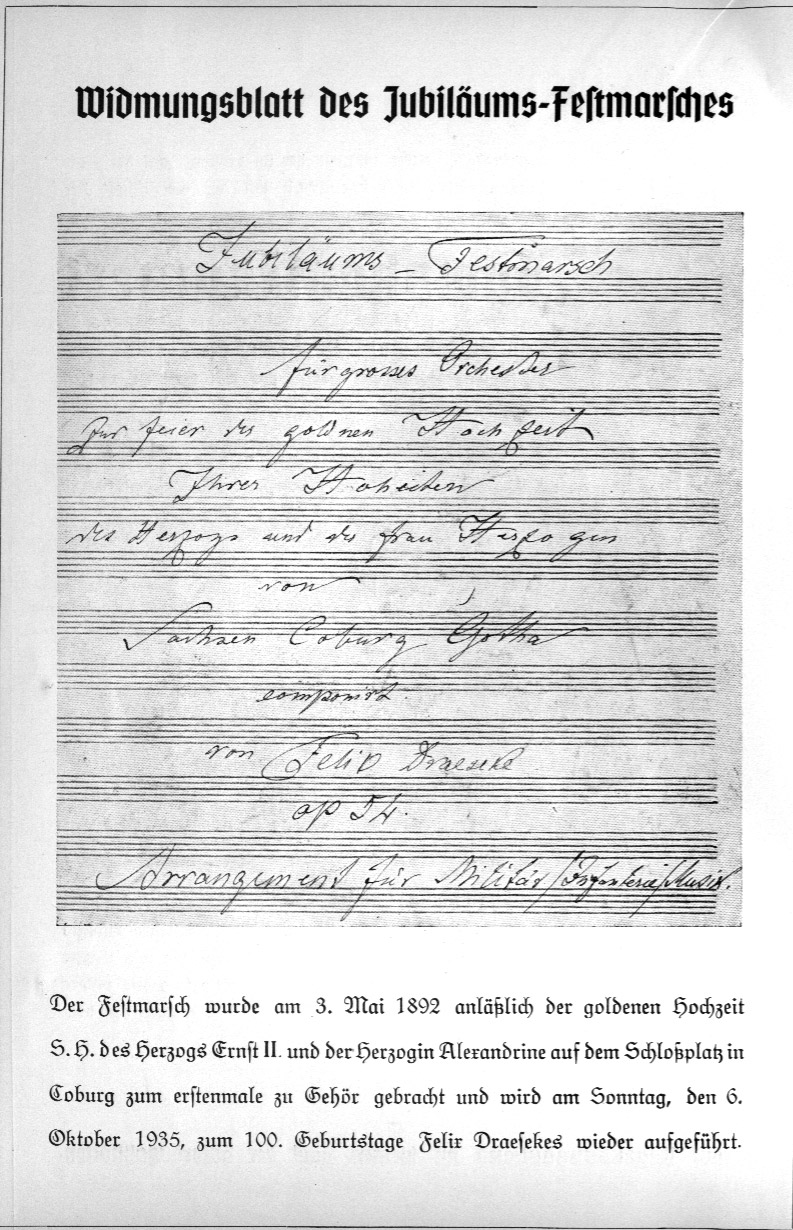 Widmungsblatt des Jubiläums-Festmarsches
Jubiläums - Festmarsch
für grosses Orchester
Zur feier der goldnen Hochzeit
Ihrer Hoheiten
des Herzogs und der frau Herzogin
von
Sachsen Coburg Gotha
componirt.
von Felix Draeseke
op 54.
Arrangement für Militär/Infanterie/Musik.
Der Festmarsch wurde am 3. Mai 1892 anläßlich der goldenen Hochzeit
S. H. des Herzogs Ernst II. und der Herzogin Alexandrine auf dem Schloßplatz in
Coburg zum erstenmale zu Gehör gebracht und wird am Sonntag, den 6.
Oktober 1935, zum 100. Geburtstage Felix Draesekes wieder aufgeführt.